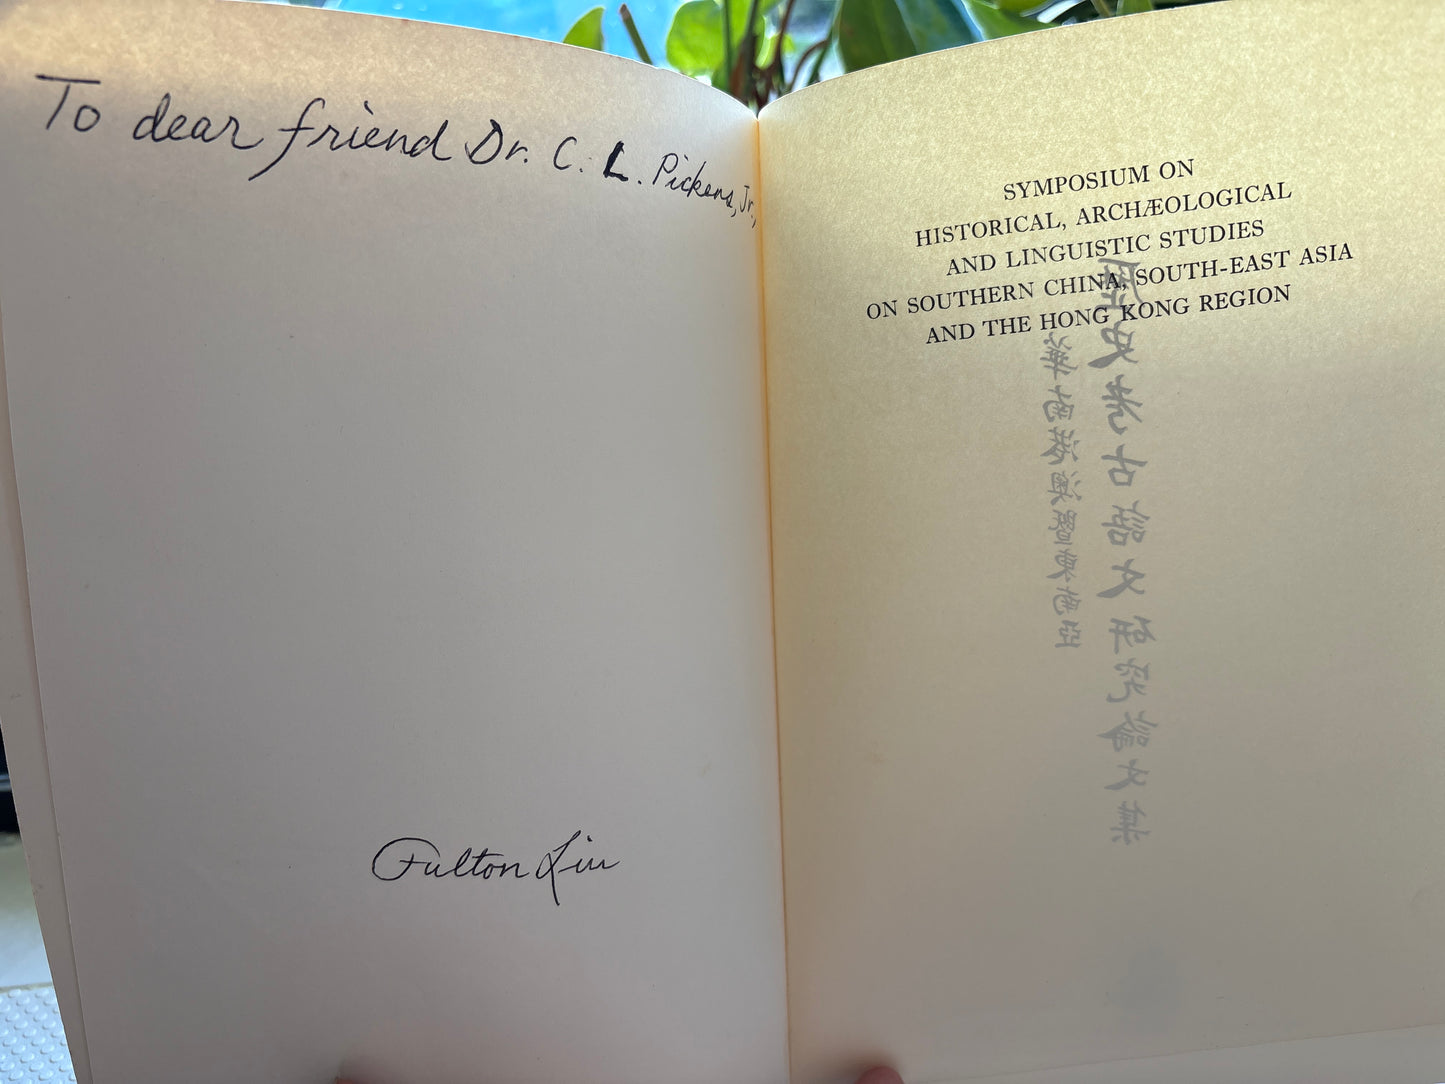 To dear friend Dr. C. L. Pickens, Jr.,
Fulton Liu
SYMPOSIUM ON
HISTORICAL, ARCHÆOLOGICAL
AND LINGUISTIC STUDIES
ON SOUTHERN CHINA, SOUTH-EAST ASIA
AND THE HONG KONG REGION
歷史考古語文研究論文集
華南港澳暨東南亞